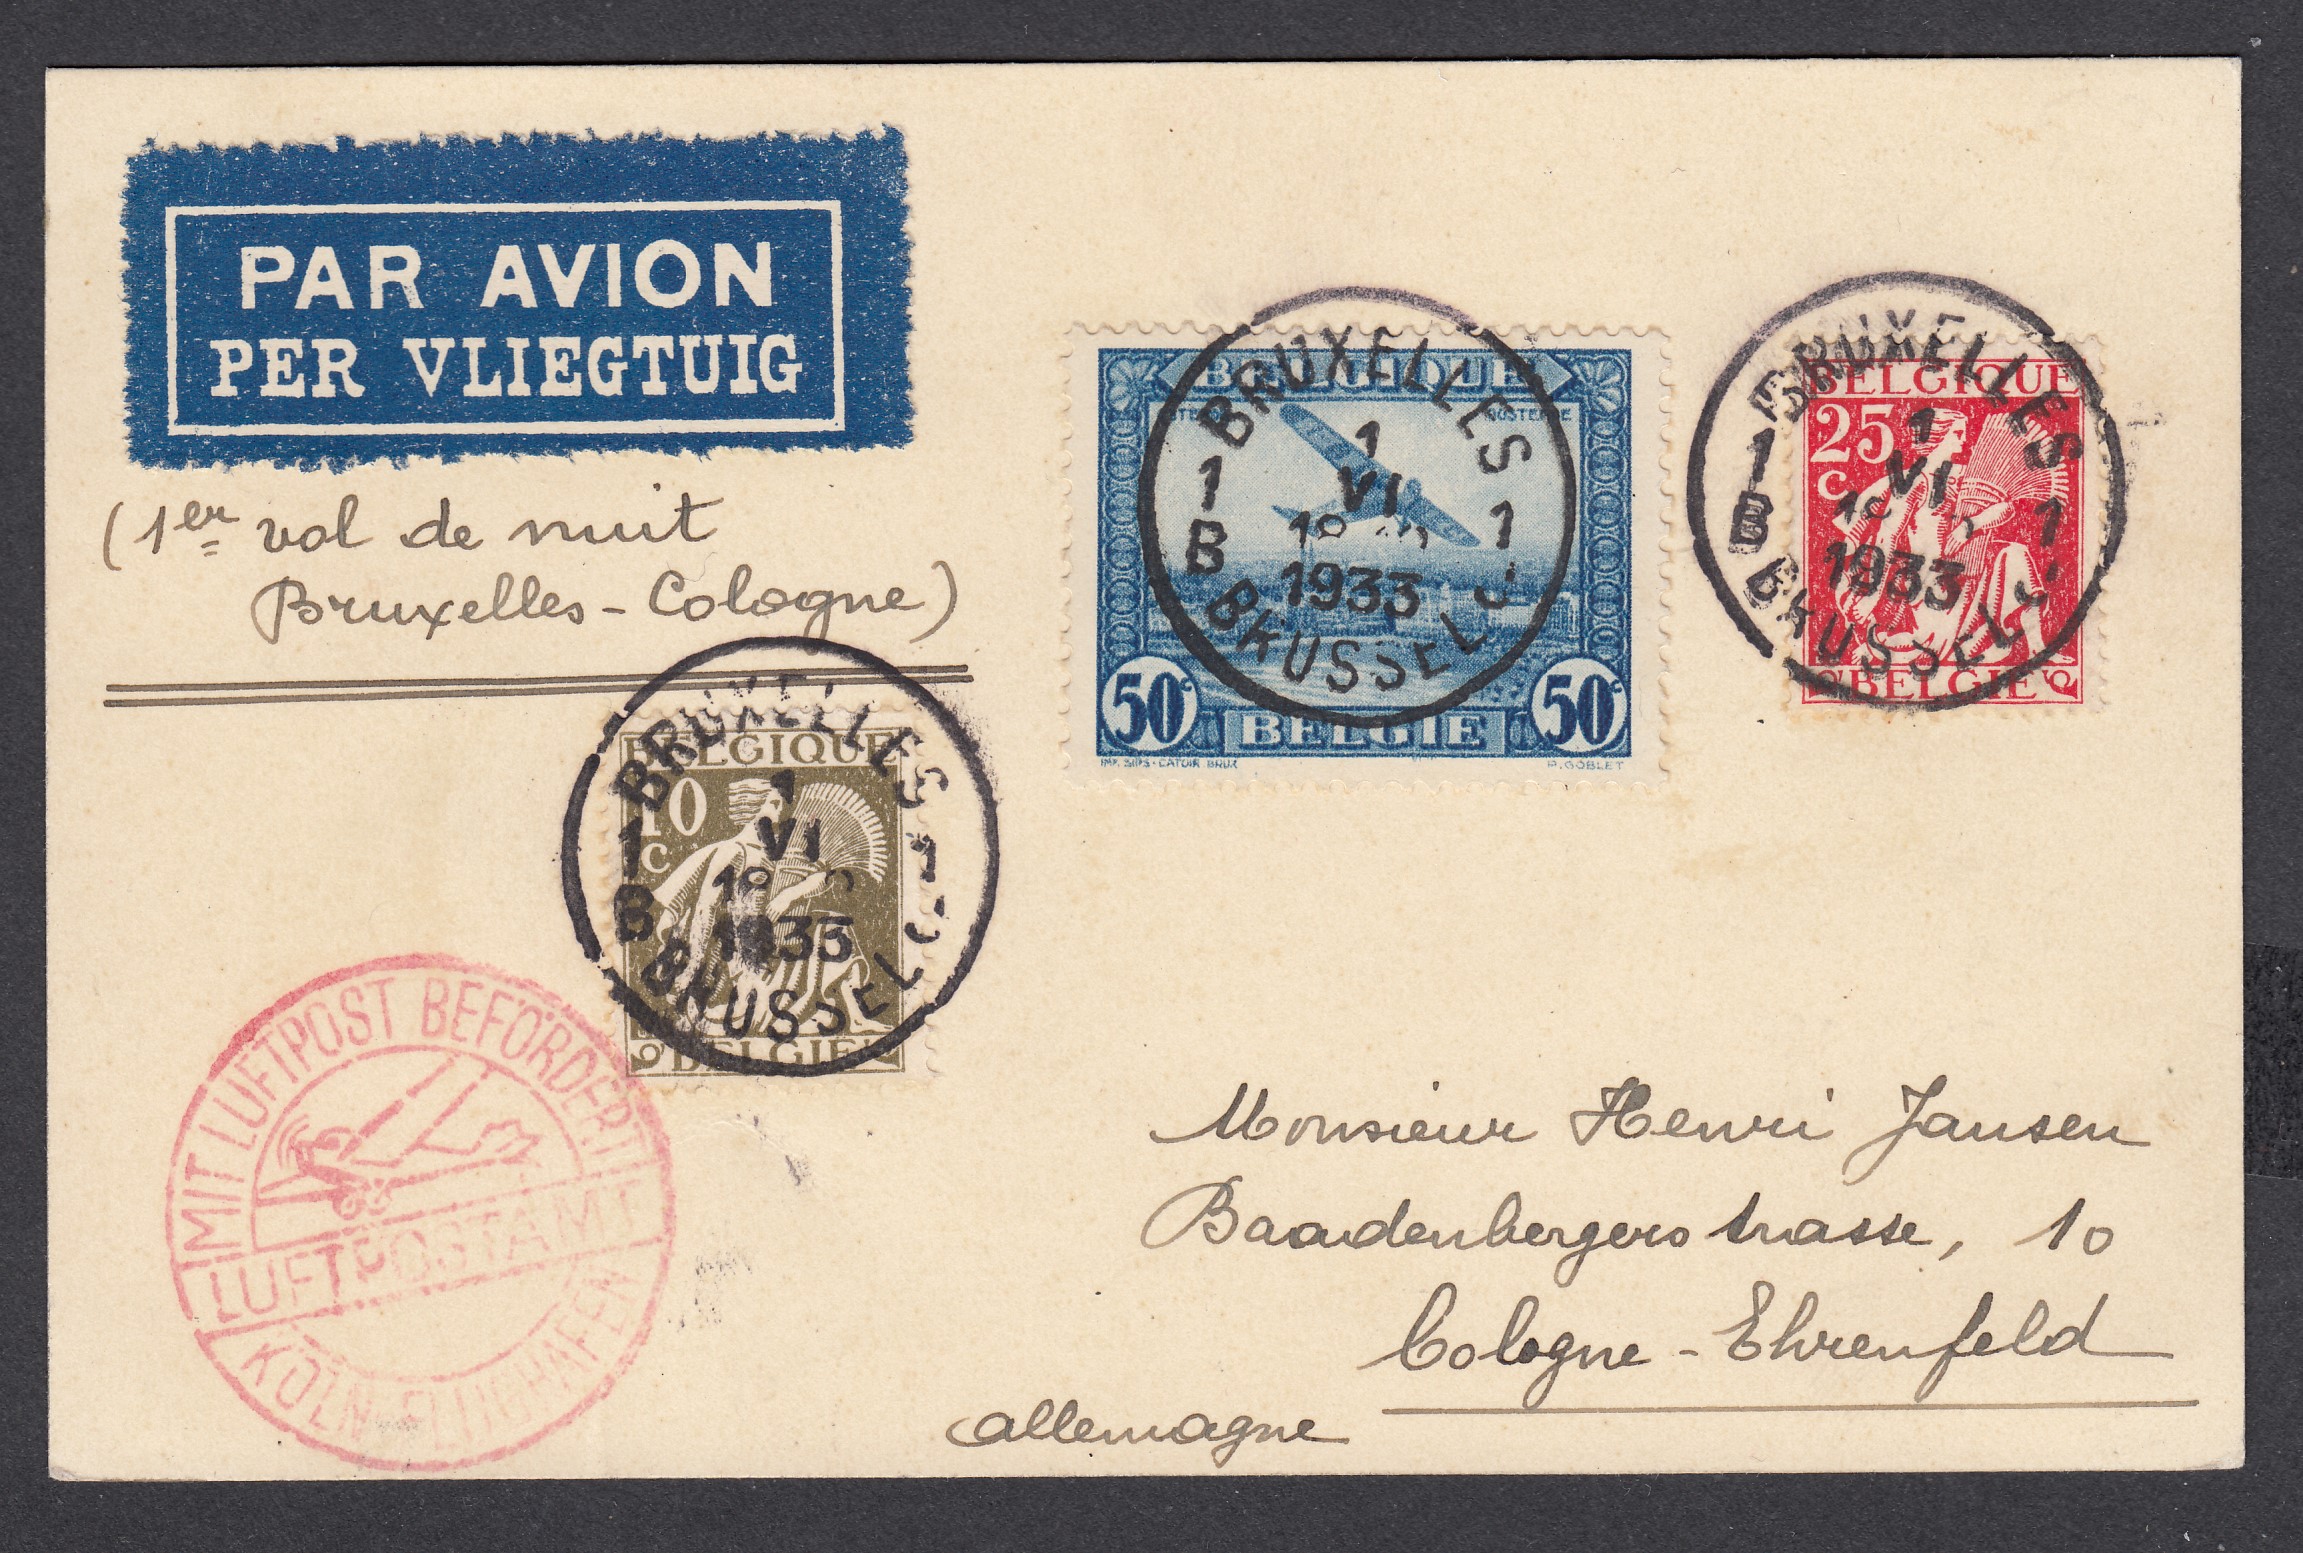 PAR AVION
PER VLIEGTUIG
(1er vol de nuit
Bruxelles - Cologne)
BELGIQUE
OOSTENDE
50c 50c
BELGIË
IMP. SIPS-CATOIR BRUX
P. GOBLET
BRUXELLES
1 1
VI
B
1933
BRUSSEL
BELGIQUE
25
C
BELGIË
BRUXELLES
1 1
VI
B
1933
BRUSSEL
BELGIQUE
10
C
BELGIË
BRUXELLES
1 1
VI
B
1933
BRUSSEL
MIT LUFTPOST BEFÖRDERT
LUFTPOSTAMT
KÖLN FLUGHAFEN
Monsieur Henri Jansen
Baadenbergerstrasse, 10
Cologne - Ehrenfeld
Allemagne